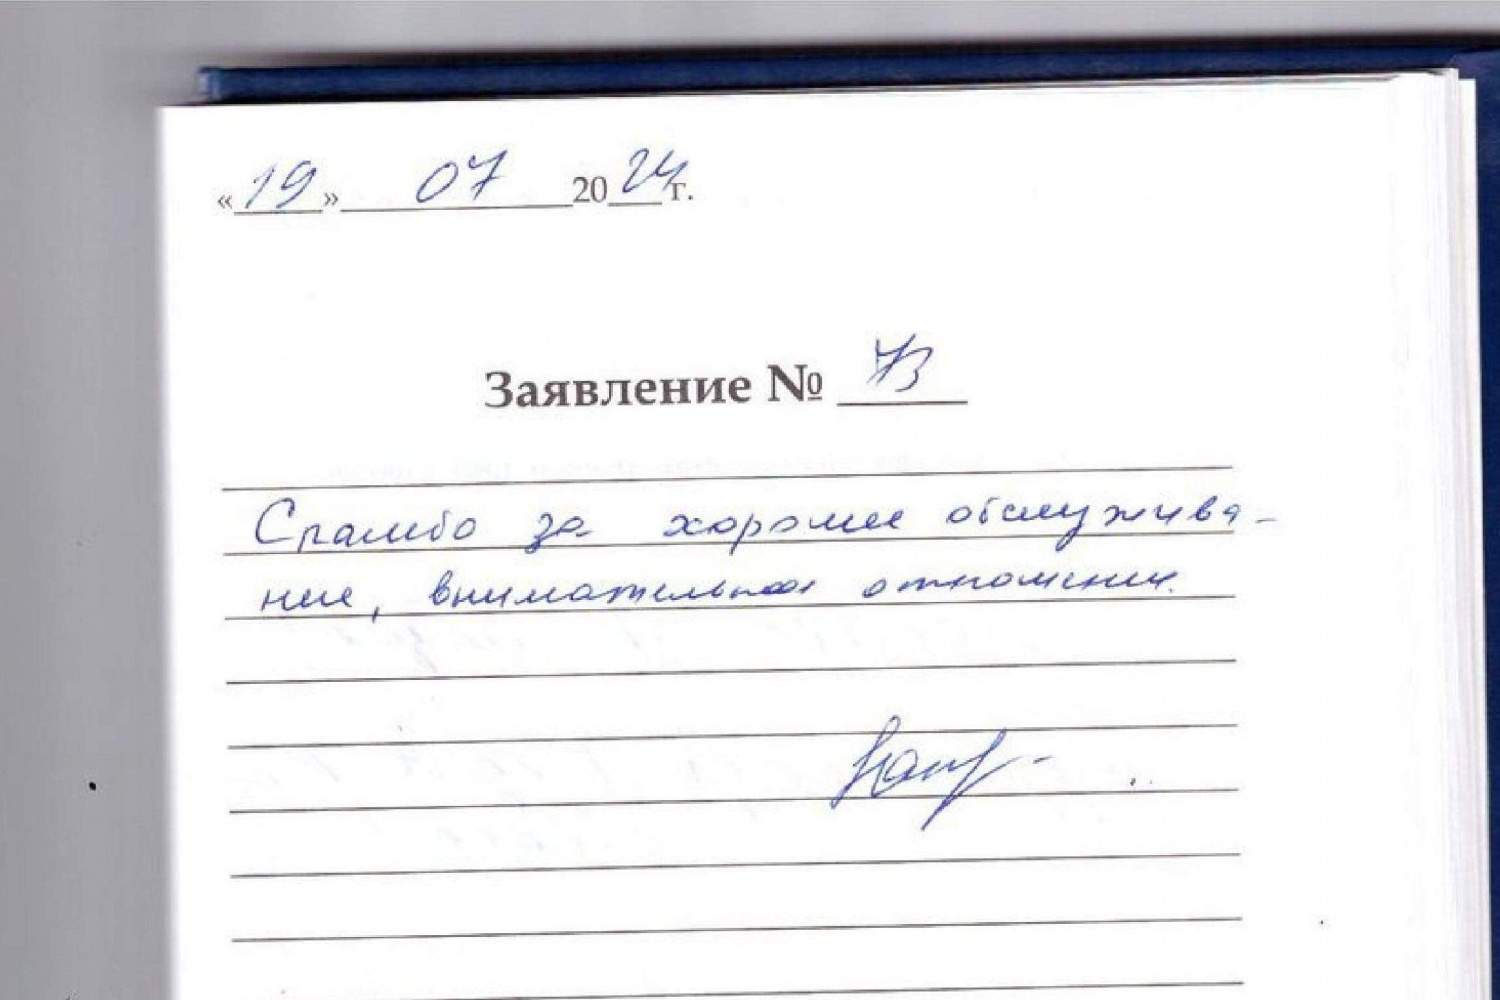 «19» 07 2024г.
Заявление № 73
Спасибо за хорошее обслужива-
ние, внимательное отношение.